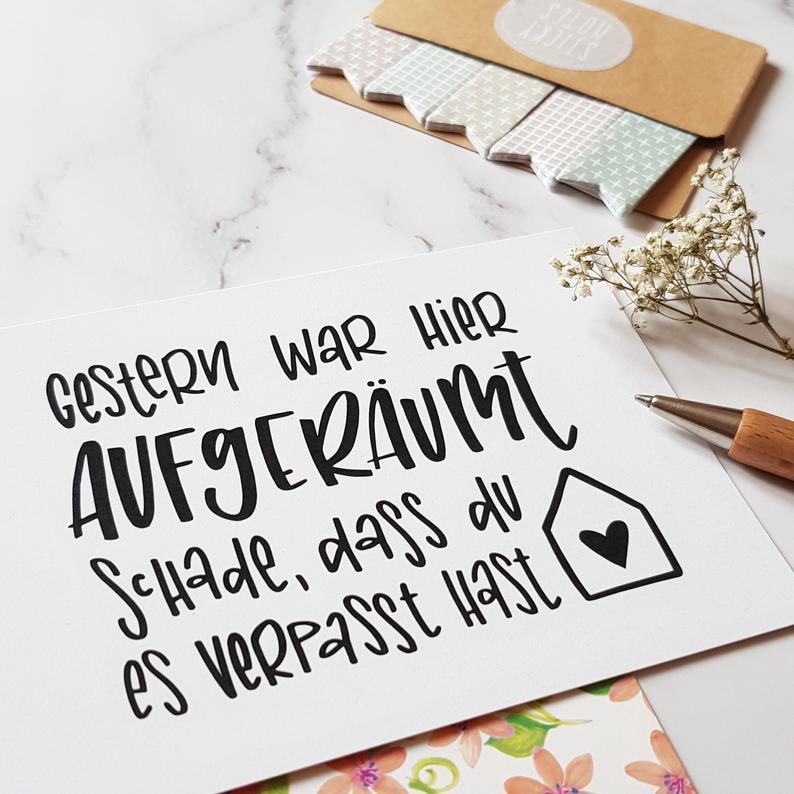 STICKY
NOTES
Gestern war hier
AUFGERÄUMT
Schade, dass du
es verpasst hast